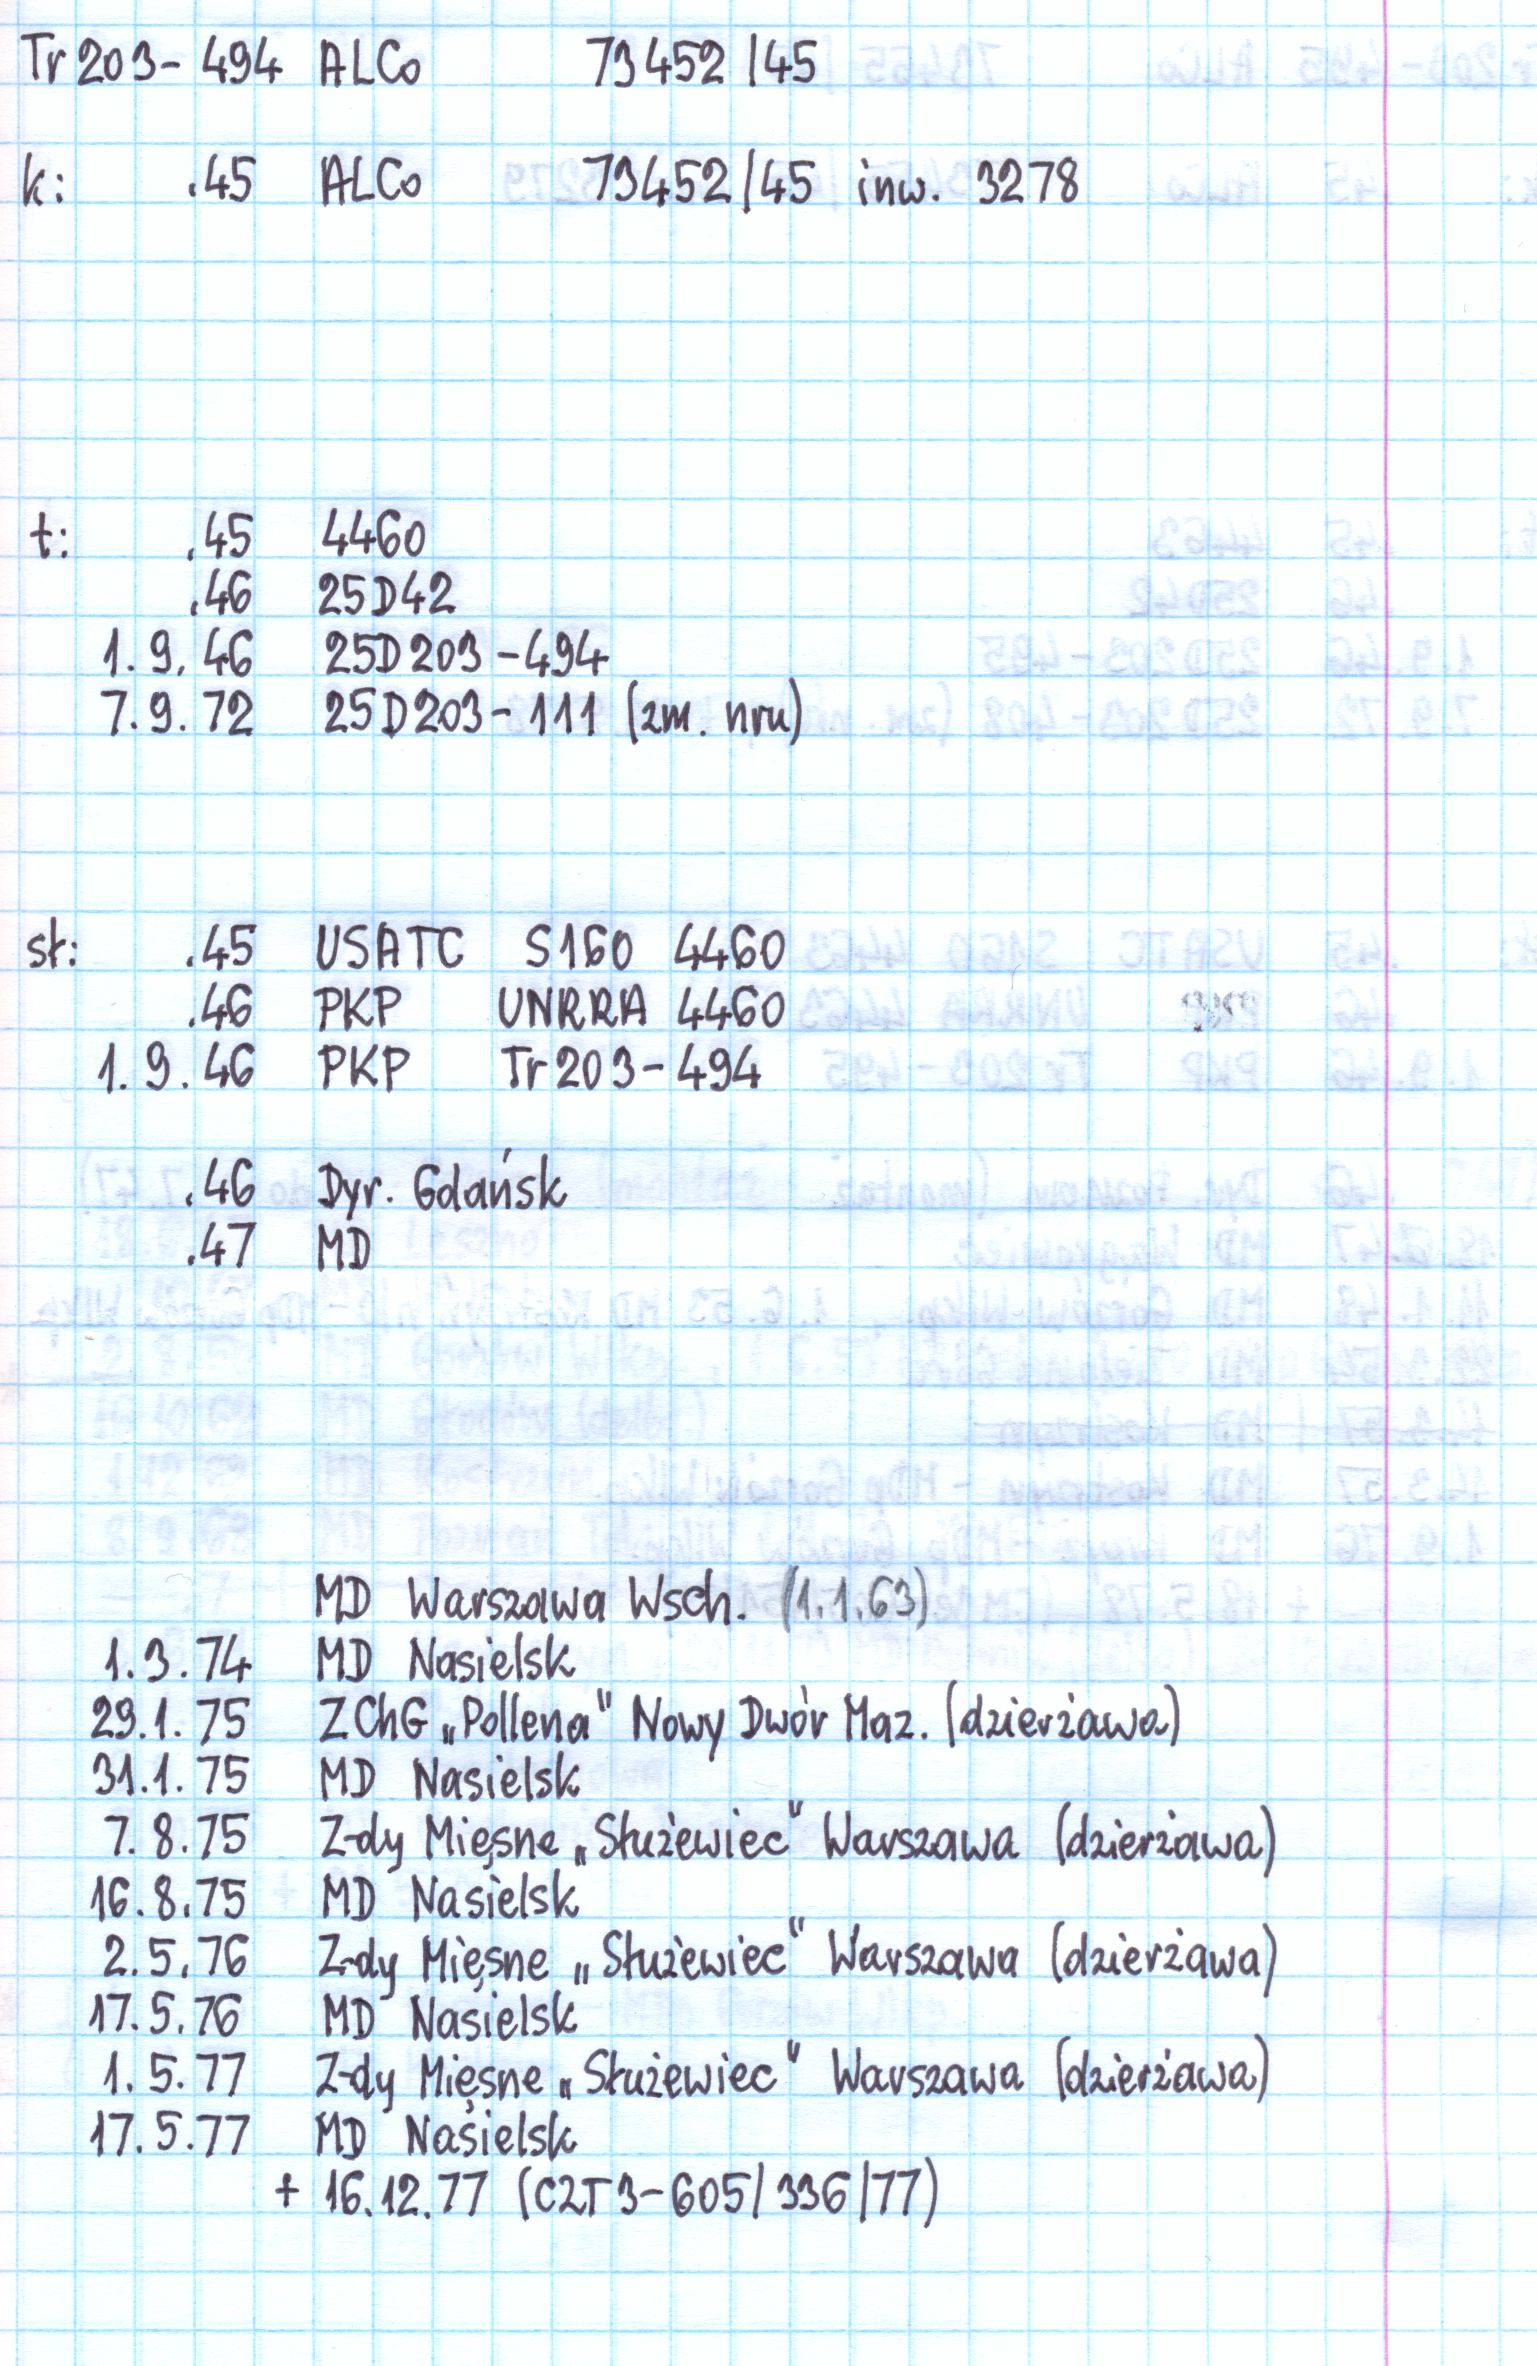 Tr 203-494 ALCo 73452/45
k: .45 ALCo 73452/45 inw. 3278
t: .45 4460
.46 25D42
1.9.46 25D203-494
7.9.72 25D203-111 (zm. nru)
sł: .45 USATC S160 4460
.46 PKP UNRRA 4460
1.9.46 PKP Tr203-494
.46 Dyr. Gdańsk
.47 MD
MD Warszawa Wsch. (1.1.63)
1.3.74 MD Nasielsk
29.1.75 ZChG „Pollena" Nowy Dwór Maz. (dzierżawa)
31.1.75 MD Nasielsk
7.8.75 Z-dy Mięsne „Służewiec" Warszawa (dzierżawa)
16.8.75 MD Nasielsk
2.5.76 Z-dy Mięsne „Służewiec" Warszawa (dzierżawa)
17.5.76 MD Nasielsk
1.5.77 Z-dy Mięsne „Służewiec" Warszawa (dzierżawa)
17.5.77 MD Nasielsk
+ 16.12.77 (CZT3-605/336/77)